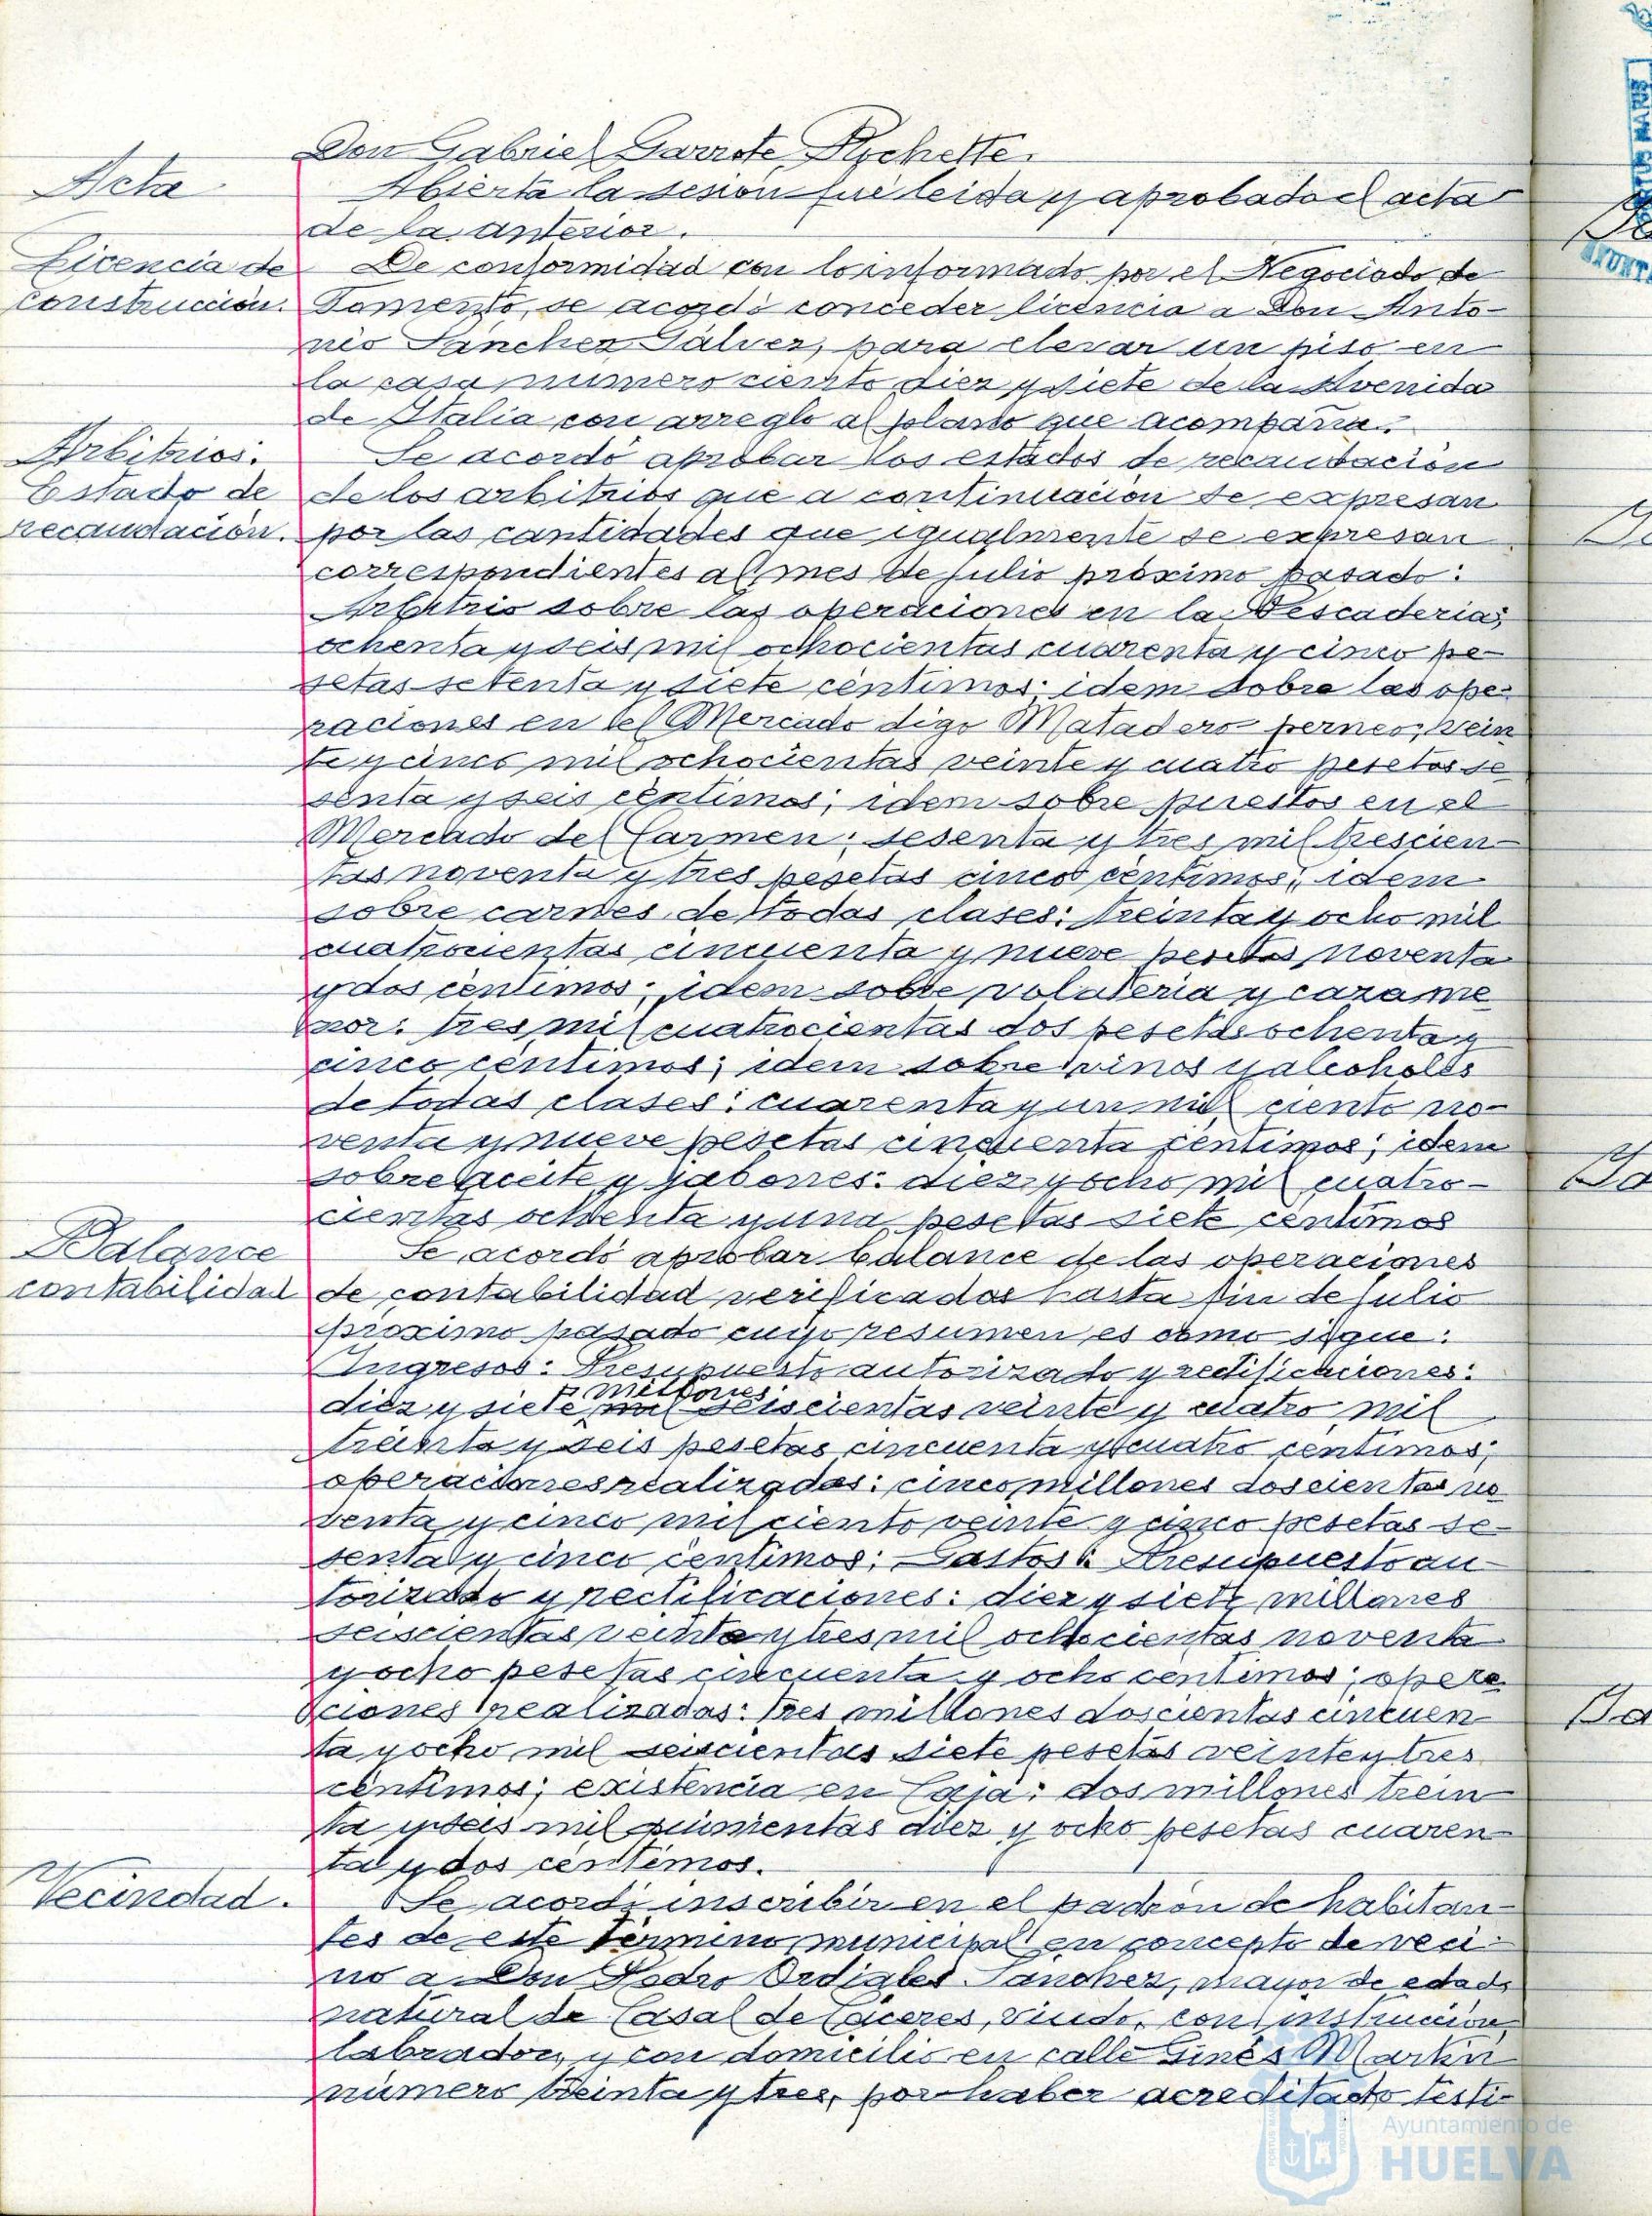 Don Gabriel Garrote Pychette.
Acta
Abierta la sesion fué leida y aprobado el acta
de la anterior.
Licencia de
construcción.
De conformidad con lo informado por el Negociado de
Fomento, se acordó conceder licencia a Don Anto-
nio Sánchez Gálvez, para elevar un piso en
la casa número ciento diez y siete de la Avenida
de Italia con arreglo al plano que acompaña.
Arbitrios:
Estado de
recaudación.
Se acordó aprobar los estados de recaudación
de los arbitrios que a continuación se expresan
por las cantidades que igualmente se expresan
correspondientes al mes de julio próximo pasado:
Arbitrio sobre las operaciones en la Pescaderia;
ochenta y seis mil ochocientas cuarenta y cinco pe-
setas setenta y siete céntimos; idem sobre las ope-
raciones en el Mercado digo Matadero perneo; vein
te y cinco mil ochocientas veinte y cuatro pesetas se
senta y seis céntimos; idem sobre puestos en el
Mercado del Carmen; sesenta y tres mil trescien-
tas noventa y tres pesetas cinco céntimos; idem
sobre carnes de todas clases: treinta y ocho mil
cuatrocientas cincuenta y nueve pesetas noventa
y dos céntimos; idem sobre volateria y caza me
nor: tres mil cuatrocientas dos pesetas ochenta y
cinco céntimos; idem sobre vinos y alcoholes
de todas clases: cuarenta y un mil ciento no-
venta y nueve pesetas cincuenta céntimos; idem
sobre aceite y jabones: diez y ocho mil cuatro-
cientas ochenta y una pesetas siete céntimos
Balance
contabilidad
Se acordó aprobar balance de las operaciones
de contabilidad verificadas hasta fin de julio
próximo pasado cuyo resumen es como sigue:
Ingresos: Presupuesto autorizado y rectificaciones:
millones
diez y siete mil seiscientas veinte y cuatro mil
treinta y seis pesetas cincuenta y cuatro céntimos;
operaciones realizadas: cinco millones doscientas no
venta y cinco mil ciento veinte y cinco pesetas se-
senta y cinco céntimos; Gastos: Presupuesto au-
torizado y rectificaciones: diez y siete millones
seiscientas veinte y tres mil ochocientas noventa
y ocho pesetas cincuenta y ocho centimos; opera
ciones realizadas: tres millones doscientas cincuen-
ta y ocho mil seiscientas siete pesetas veinte y tres
céntimos; existencia en Caja: dos millones trein-
ta y seis mil quinientas diez y ocho pesetas cuaren-
ta y dos céntimos.
Vecindad.
Se acordó inscribir en el padrón de habitan-
tes de este término municipal en concepto de veci-
no a Don Pedro Ordigles Sánchez, mayor de edad,
natural de Casal de Cáceres, viudo, con instrucción,
labrador, y con domicilio en calle Ginés Martin
número treinta y tres, por haber acreditado testi-
Ayuntamiento de
HUELVA